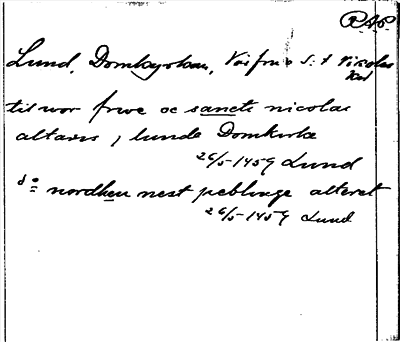 RAP.
Lund, Domkyrkan, Vor frue o S:t Nikolas
kal
til wor frwe oc sancte nicolai
altare i lunde Domkirke
26/5-1459 Lund
d:o nordhen nest peblinge alteret
26/5-1459 Lund